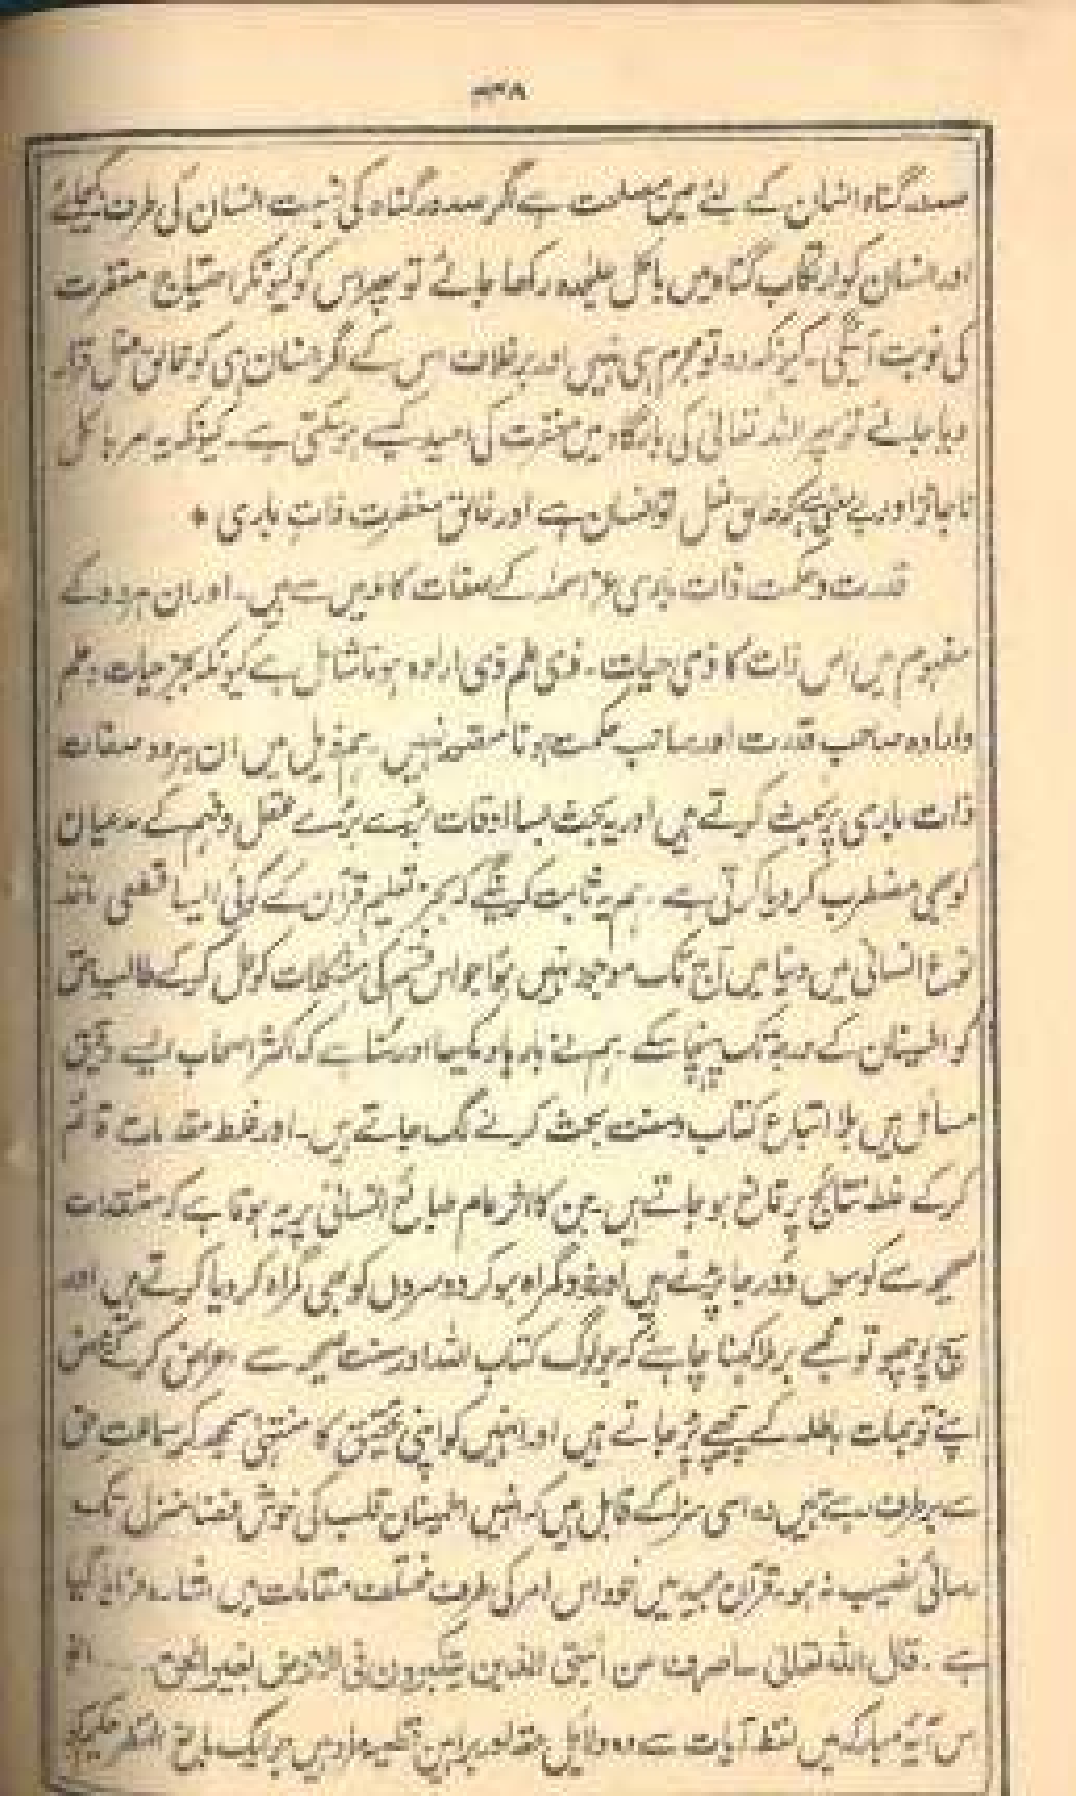 ۳۳۸
صدور گناہ انسان کے لئے عین مصلحت ہے اگر صدور گناہ کی نسبت انسان کی طرف نہ کیجائے
اور انسان کو ارتکاب گناہ میں بالکل علیٰحدہ رکھا جائے تو پھر اس کو کیونکر احتیاج مغفرت
کی نوبت آئیگی۔ کیونکہ وہ تو مجرم ہی نہیں اور برخلاف اس کے اگر انسان ہی کو خالق فعل قرار
دیا جائے تو پھر اللہ تعالیٰ کی بارگاہ میں مغفرت کی امید کیسے ہو سکتی ہے۔ کیونکہ یہ امر بالکل
ناجائز اور بے معنی ہے کہ خالق فعل تو انسان ہے اور خالق مغفرت ذات باری +
قدرت و حکمت ذات باری عز اسمہٗ کے صفات کاملہ میں سے ہیں۔ اور ان ہر دو کے
مفہوم میں اس ذات کا ذی حیات۔ ذی علم ذی ارادہ ہونا شامل ہے کیونکہ بجز حیات و علم
و ارادہ صاحب قدرت اور صاحب حکمت ہونا متصور نہیں۔ ہم ذیل میں ان ہر دو صفات
ذات باری پر بحث کرتے ہیں اور یہ بحث بسا اوقات بڑے بڑے عقل و فہم کے مدعیان
کو بھی مضطرب کر دیا کرتی ہے۔ ہم یہ ثابت کرینگے کہ بجز تعلیم قرآن کے کوئی ایسا قطعی ماخذ
نوع انسانی میں دنیا میں آج تک موجود نہیں ہوا جو اس قسم کی مشکلات کو حل کرکے طالب حق
کو اطمینان کے مرتبہ تک پہنچا سکے۔ ہم نے بار ہا دیکھا اور سنا ہے کہ اکثر اصحاب ایسے دقیق
مسائل میں بلا اتباع کتاب و سنت بحث کرنے لگ جاتے ہیں۔ اور غلط مقدمات قائم
کرکے غلط نتائج پر قانع ہو جاتے ہیں۔ جن کا اثر عام طبائع انسانی پر یہ ہوتا ہے کہ معتقدات
صحیحہ سے کوسوں دور جا پڑتے ہیں اور خود گمراہ ہو کر دوسروں کو بھی گمراہ کر دیا کرتے ہیں اور
سچ پوچھو تو مجھے برملا کہنا چاہئے کہ جو لوگ کتاب اللہ اور سنت صحیحہ سے اعراض کرکے محض
اپنے توہمات باطلہ کے پیچھے پڑ جاتے ہیں اور انہیں کو اپنی تحقیق کا منتہیٰ سمجھ کر حق
سے برطرف رہتے ہیں وہ اسی سزا کے قابل ہیں کہ انہیں اطمینان قلب کی خوش فضا منزل تک
رسائی نصیب نہ ہو۔ قرآن مجید میں خود اس امر کی طرف مختلف مقامات میں اشارہ فرمایا گیا
ہے۔ قال اللہ تعالیٰ ساصرف عن اٰیتی الذین یتکبرون فی الارض بغیر الحق۔۔۔۔ الخ
اس آیۂ مبارکہ میں لفظ آیات سے وہ دلائل حقہ اور براہین قطعیہ مراد ہیں جو ایک بالغ النظر حکیم کو